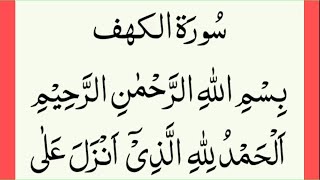 سُورَة الكهف
بِسْمِ اللهِ الرَّحْمٰنِ الرَّحِيْمِ
اَلْحَمْدُ لِلّٰهِ الَّذِىْٓ اَنْزَلَ عَلٰى